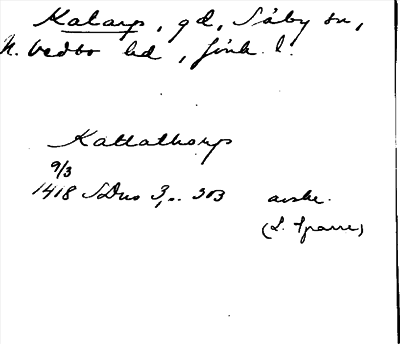 Kalarp, gd, Säby sn,
N. Vedbo hd, Jönk. l.
Kattathorp
9/3
1418 SDns 3, .. 303 avskr.
(L. Sparre)